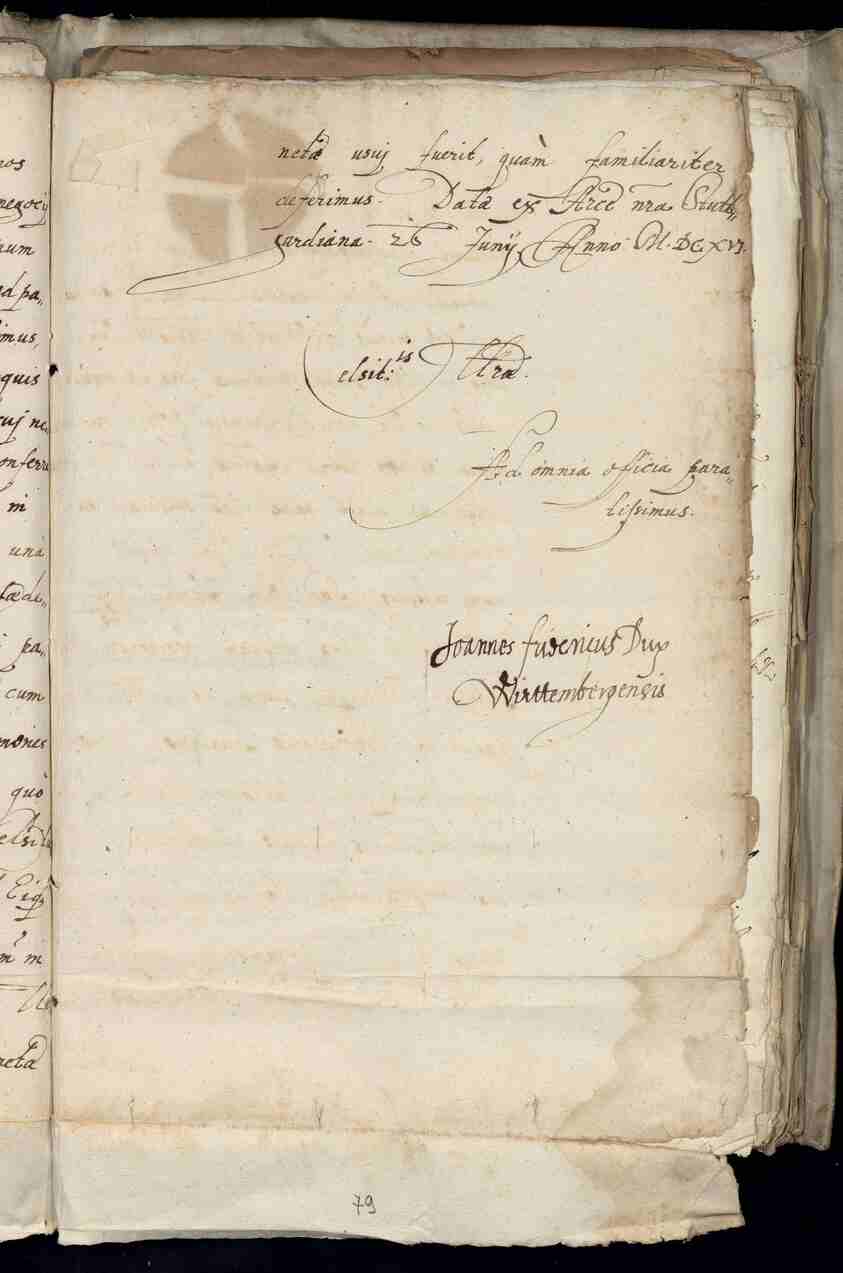 nos
negocij
num
ad pa„
imus,
quis
cuj ne„
onferre
in
una
tædi„
pa„
cum
mones
quò
elsit
m in
netæ usuj fuerit, quàm familiariter
deferimus. Data ex Arce nra Stutt„
gardiana. 26 Junij Anno M.DC.XVI.
elsit:is Vræ.
Ad omnia officia para„
tissimus.
Joannes Fridericus Dux
Wirttembergensis
79